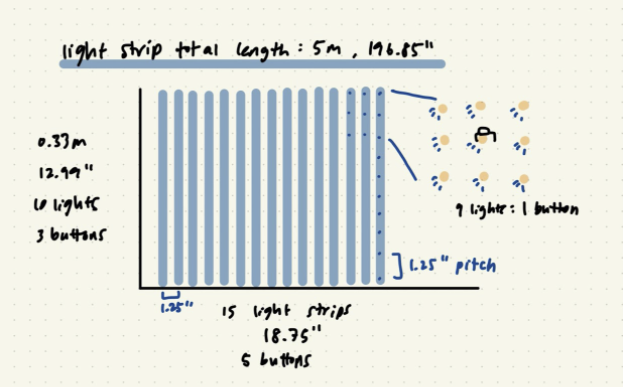 light strip total length: 5m, 196.85"
0.33m
12.99"
10 lights
3 buttons
9 lights: 1 button
1.25" pitch
1.25"
15 light strips
18.75"
5 buttons